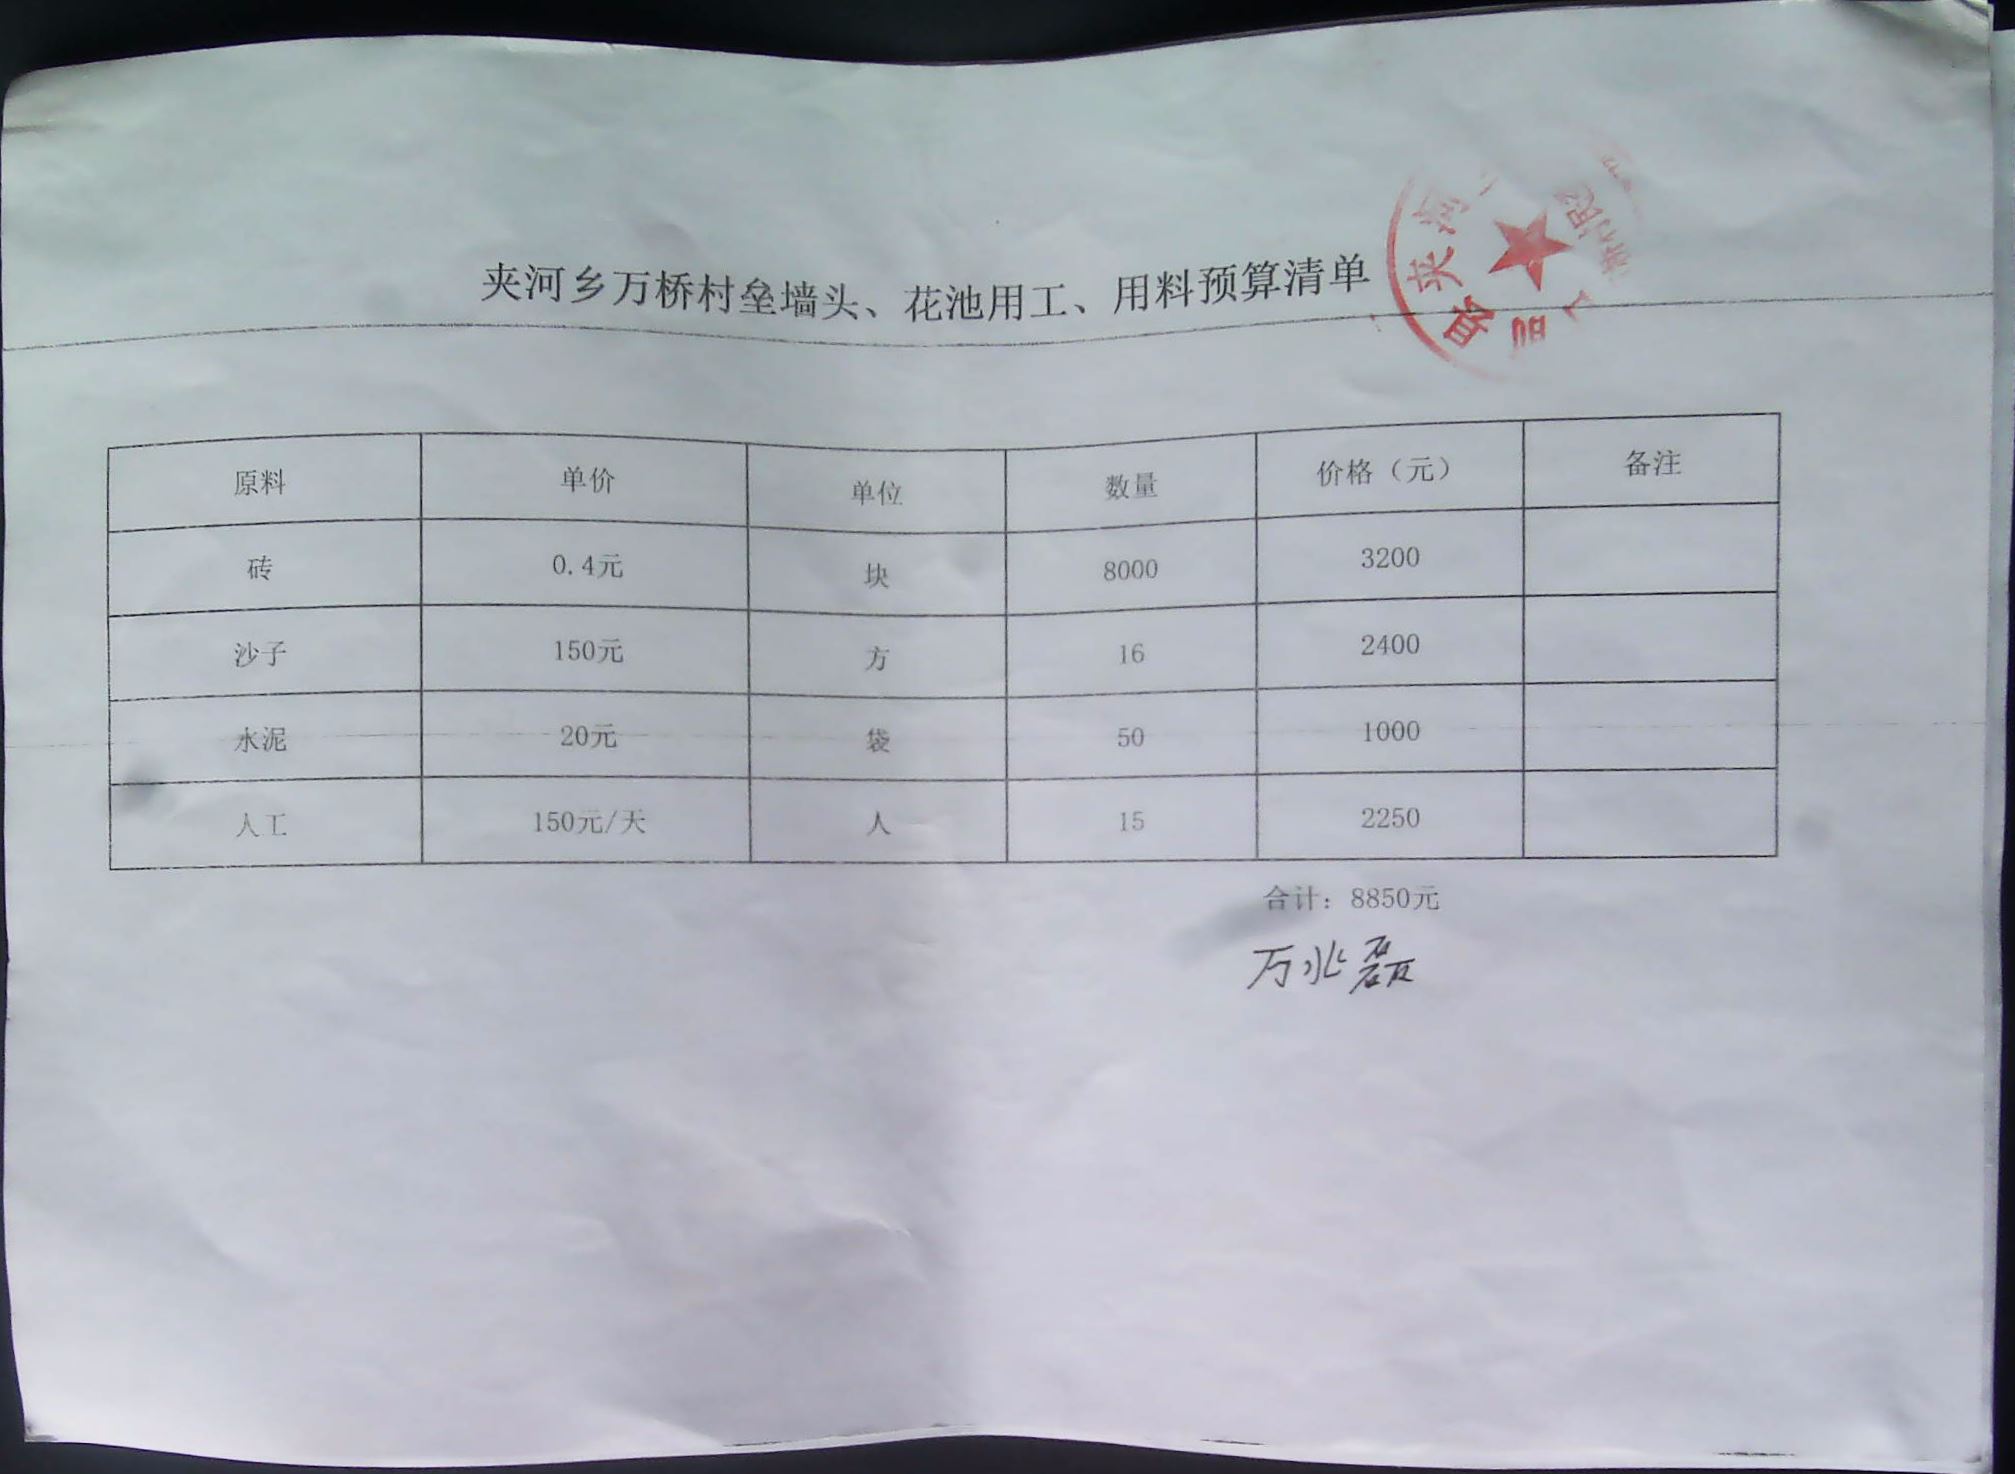 夹河乡万桥村垒墙头、花池用工、用料预算清单
原料 单价 单位 数量 价格（元） 备注
砖 0.4元 块 8000 3200
沙子 150元 方 16 2400
水泥 20元 袋 50 1000
人工 150元/天 人 15 2250
合计：8850元
万兆磊
夹河